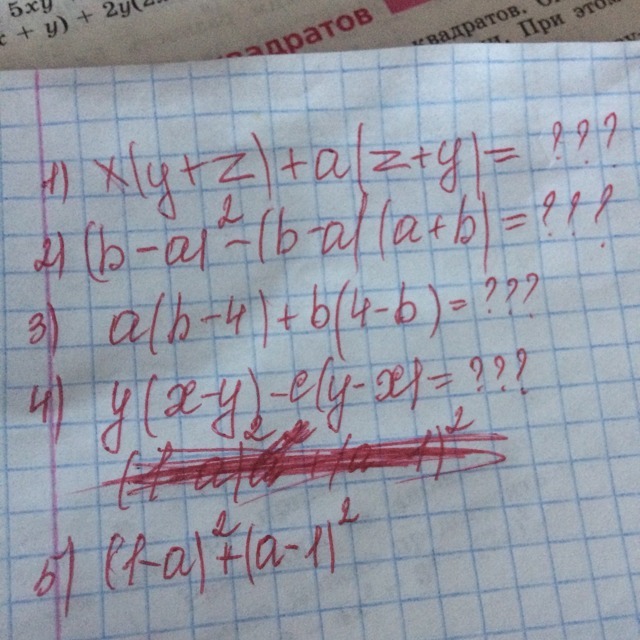 5xy
x + y) + 2y(2x
квадратов
квадратов.
При этом
1) x(y+z)+a(z+y)= ???
2) (b-a)²-(b-a)(a+b)=???
3) a(b-4)+b(4-b)=???
4) y(x-y)-c(y-x)=???
5) (1-a)²+(a-1)²